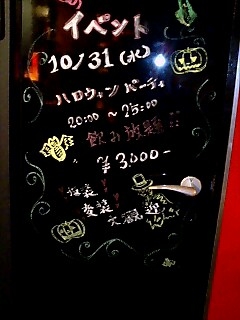 イベント
10/31(水)
ハロウィン パーティ
20:00 ~ 25:00
飲み放題!!
¥3000-
仮装
変装
大歓迎